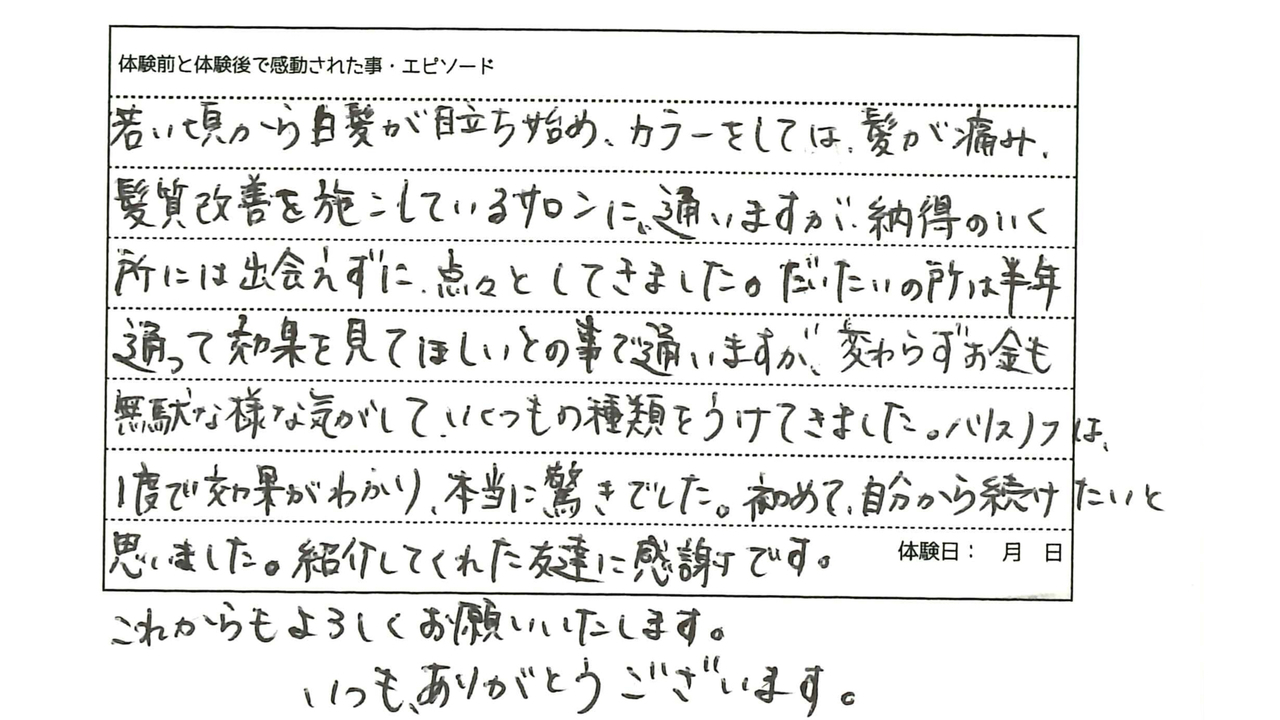 体験前と体験後で感動された事・エピソード
若い頃から白髪が目立ち始め、カラーをしては、髪が痛み、
髪質改善を施こしているサロンに、通いますが、納得のいく
所には出会えずに、点々としてきました。だいたいの所は半年
通って効果を見てほしいとの事で通いますが、変わらずお金も
無駄な様な気がして、いくつもの種類をうけてきました。バリスノフは、
1度で効果がわかり、本当に驚きでした。初めて、自分から続けたいと
思いました。紹介してくれた友達に感謝です。
体験日： 月 日
これからもよろしくお願いいたします。
いつも、ありがとうございます。